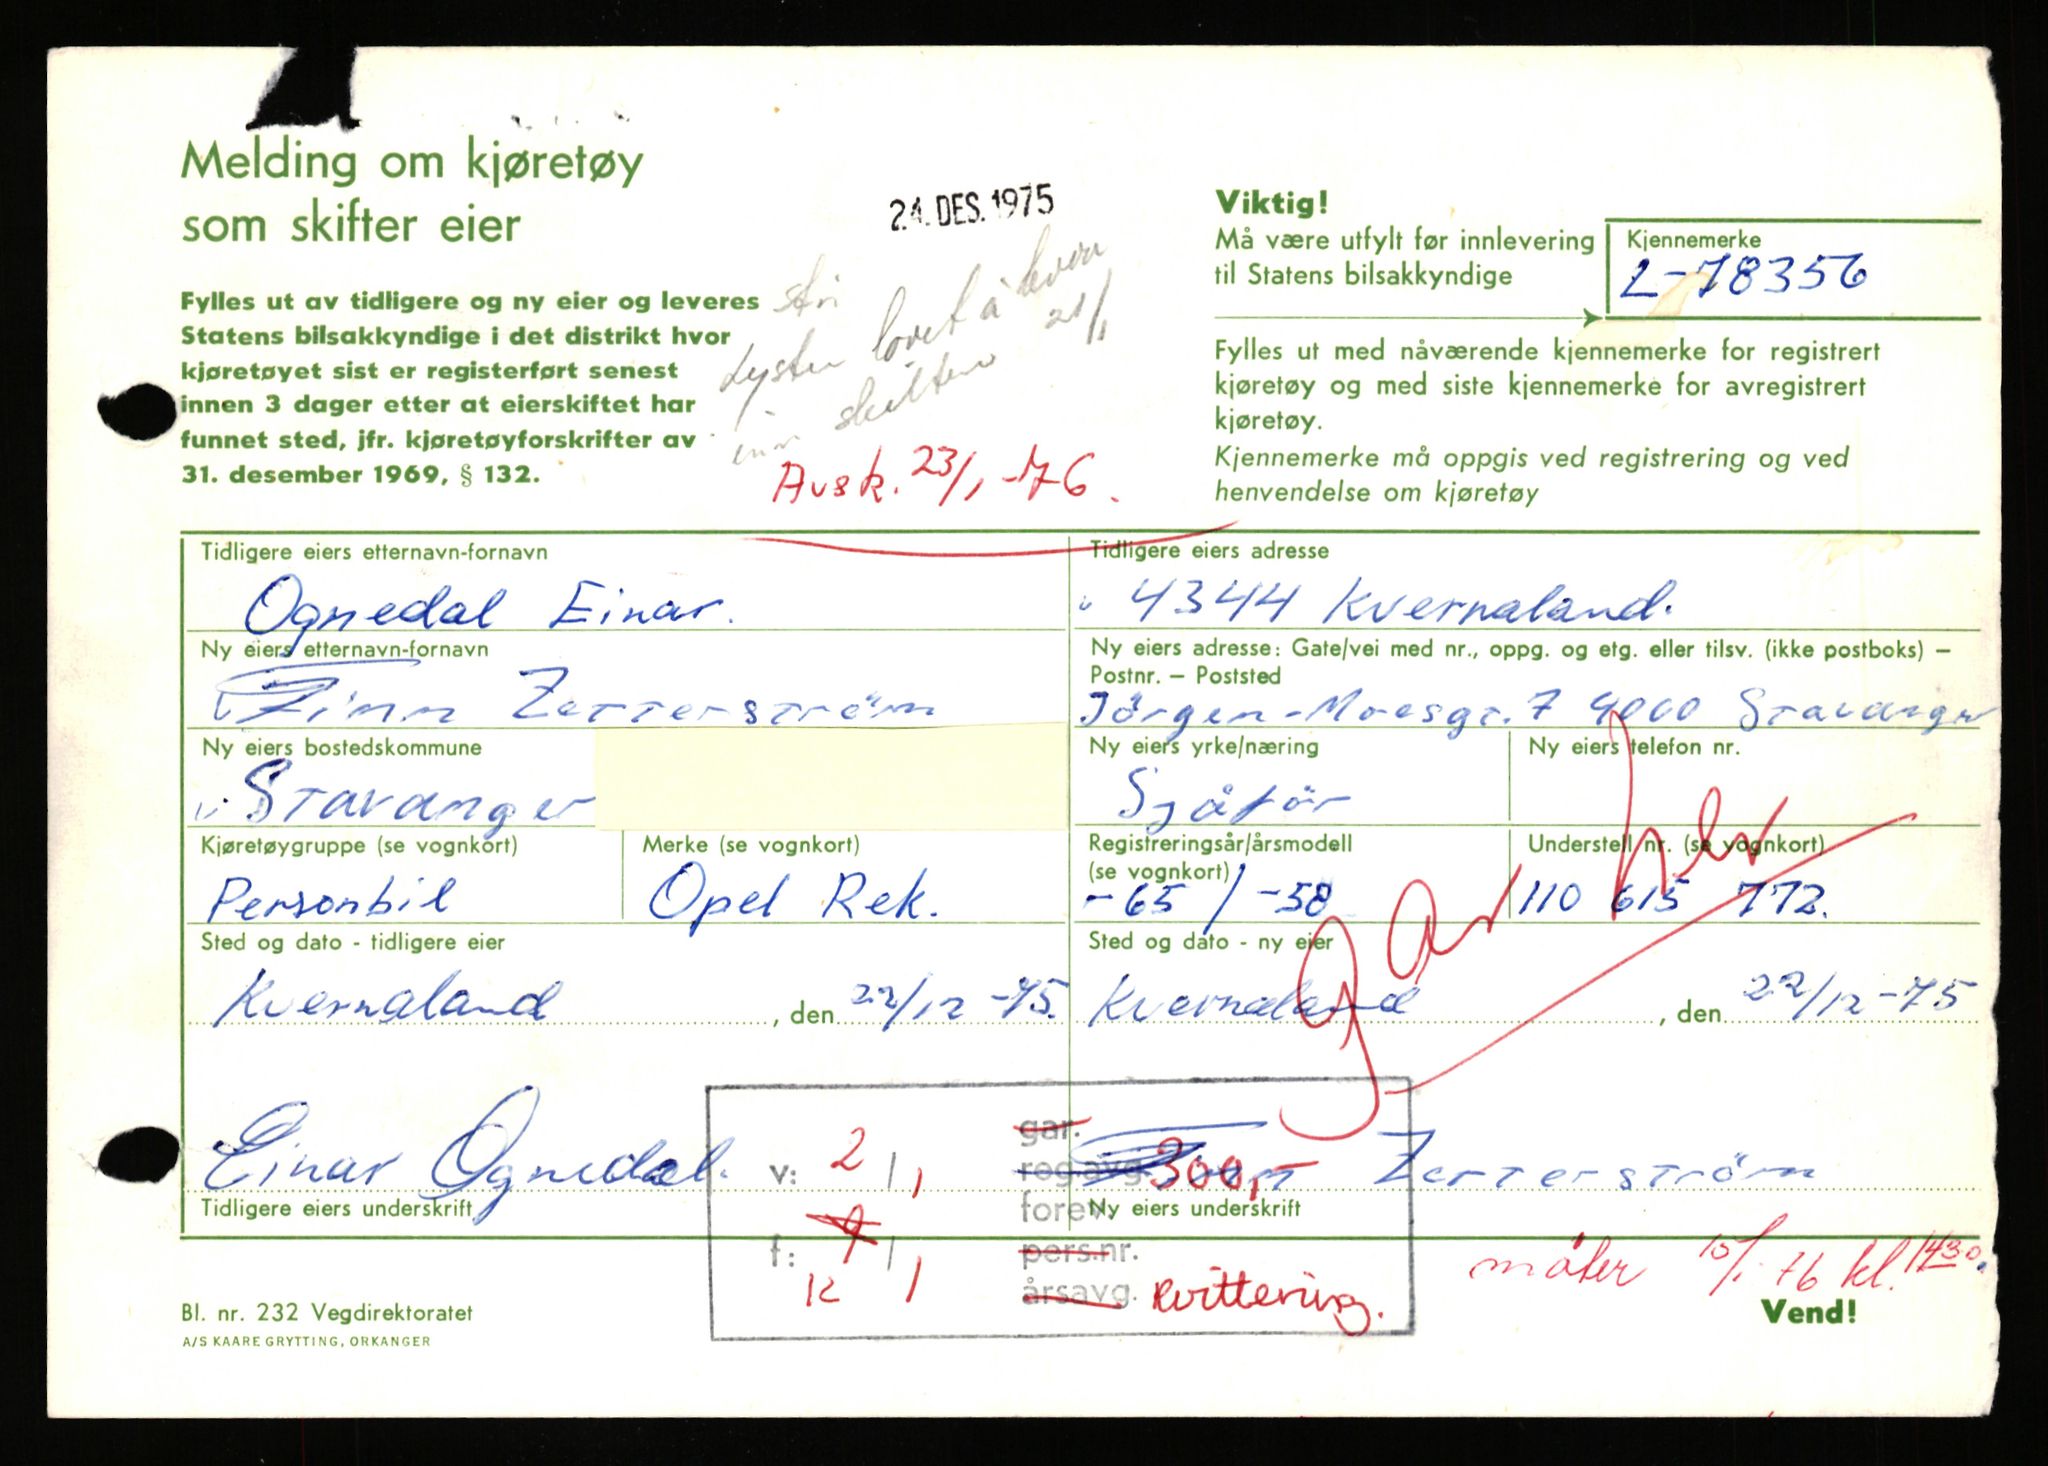 Melding om kjøretøy
som skifter eier
24. DES. 1975
Viktig!
Må være utfylt før innlevering
til Statens bilsakkyndige
Kjennemerke
L-78356
Fylles ut av tidligere og ny eier og leveres
Statens bilsakkyndige i det distrikt hvor
kjøretøyet sist er registerført senest
innen 3 dager etter at eierskiftet har
funnet sted, jfr. kjøretøyforskrifter av
31. desember 1969, § 132.
lovet å
inn skiltene 21/1
Avsk. 23/1-76.
Fylles ut med nåværende kjennemerke for registrert
kjøretøy og med siste kjennemerke for avregistrert
kjøretøy.
Kjennemerke må oppgis ved registrering og ved
henvendelse om kjøretøy
Tidligere eiers etternavn-fornavn
Ognedal Einar.
Tidligere eiers adresse
4344 Kvernaland.
Ny eiers etternavn-fornavn
Finn Zetterström
Ny eiers adresse: Gate/vei med nr., oppg. og etg. eller tilsv. (ikke postboks) –
Postnr. – Poststed
Jörgen-Moesgt. 7 4000 Stavanger
Ny eiers bostedskommune
Stavanger
Ny eiers yrke/næring
Sjåför
Ny eiers telefon nr.
Kjøretøygruppe (se vognkort)
Personbil
Merke (se vognkort)
Opel Rek.
Registreringsår/årsmodell
(se vognkort)
-65 / -58
Understell nr. (se vognkort)
110 615 772.
gar her
Sted og dato - tidligere eier
Kvernaland, den 22/12-75.
Sted og dato - ny eier
Kvernaland, den 22/12-75
Einar Ognedal.
Tidligere eiers underskrift
Finn Zetterström
Ny eiers underskrift
v: 2/1
f: 9/1
12
gar.
reg.avg. 300,-
forev.
pers.nr.
årsavg. kvittering.
møter 10/1-76 kl. 1430.
Bl. nr. 232 Vegdirektoratet
A/S KAARE GRYTTING, ORKANGER
Vend!